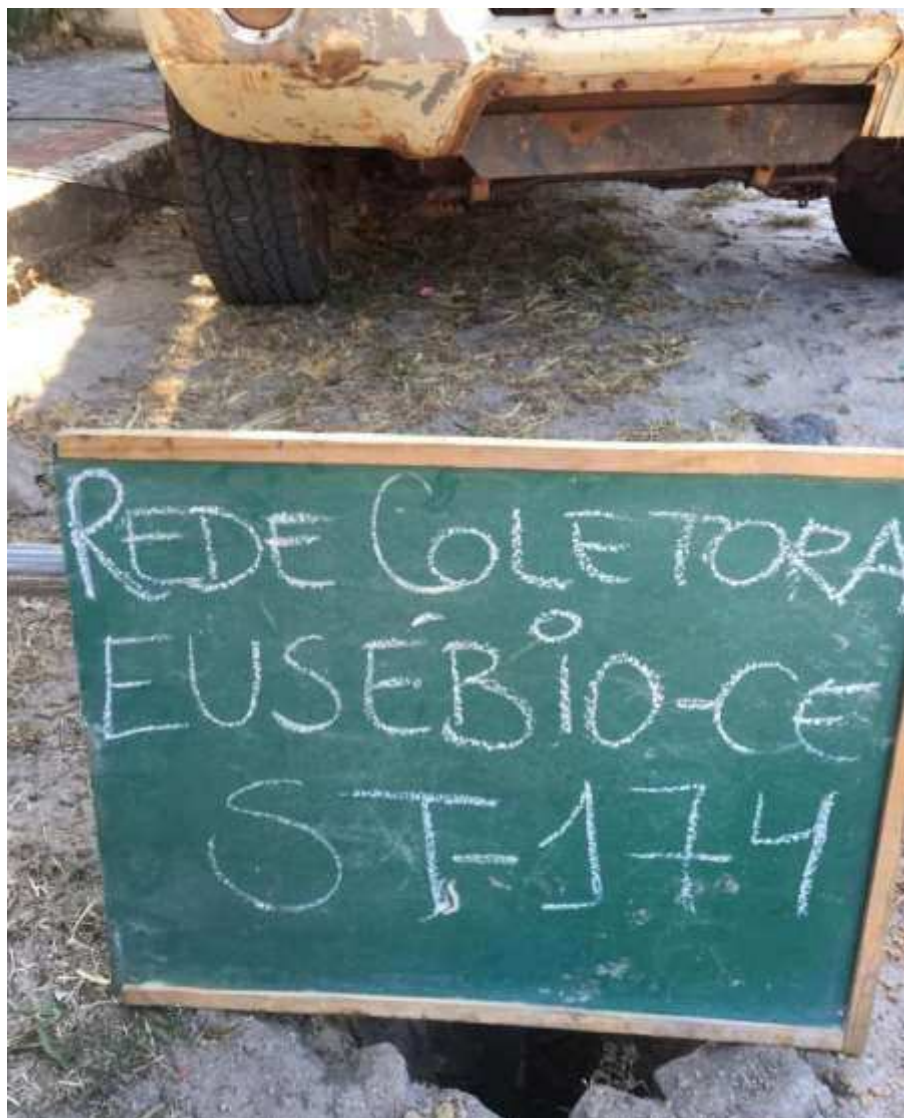 REDE COLETORA
EUSÉBIO-CE
ST-174